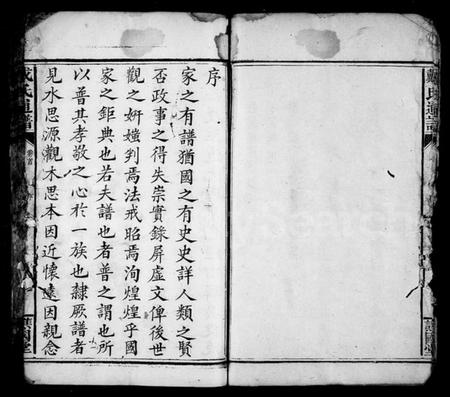 序
家之有譜猶國之有史史詳人類之賢
否政事之得失崇實錄屏虛文俾後世
觀之妍媸判焉法戒昭焉洵煌煌乎國
家之鉅典也若夫譜也者普之謂也所
以普其孝敬之心於一族也隸厥譜者
見水思源觀木思本因近懷遠因親念
戴氏通譜
卷首